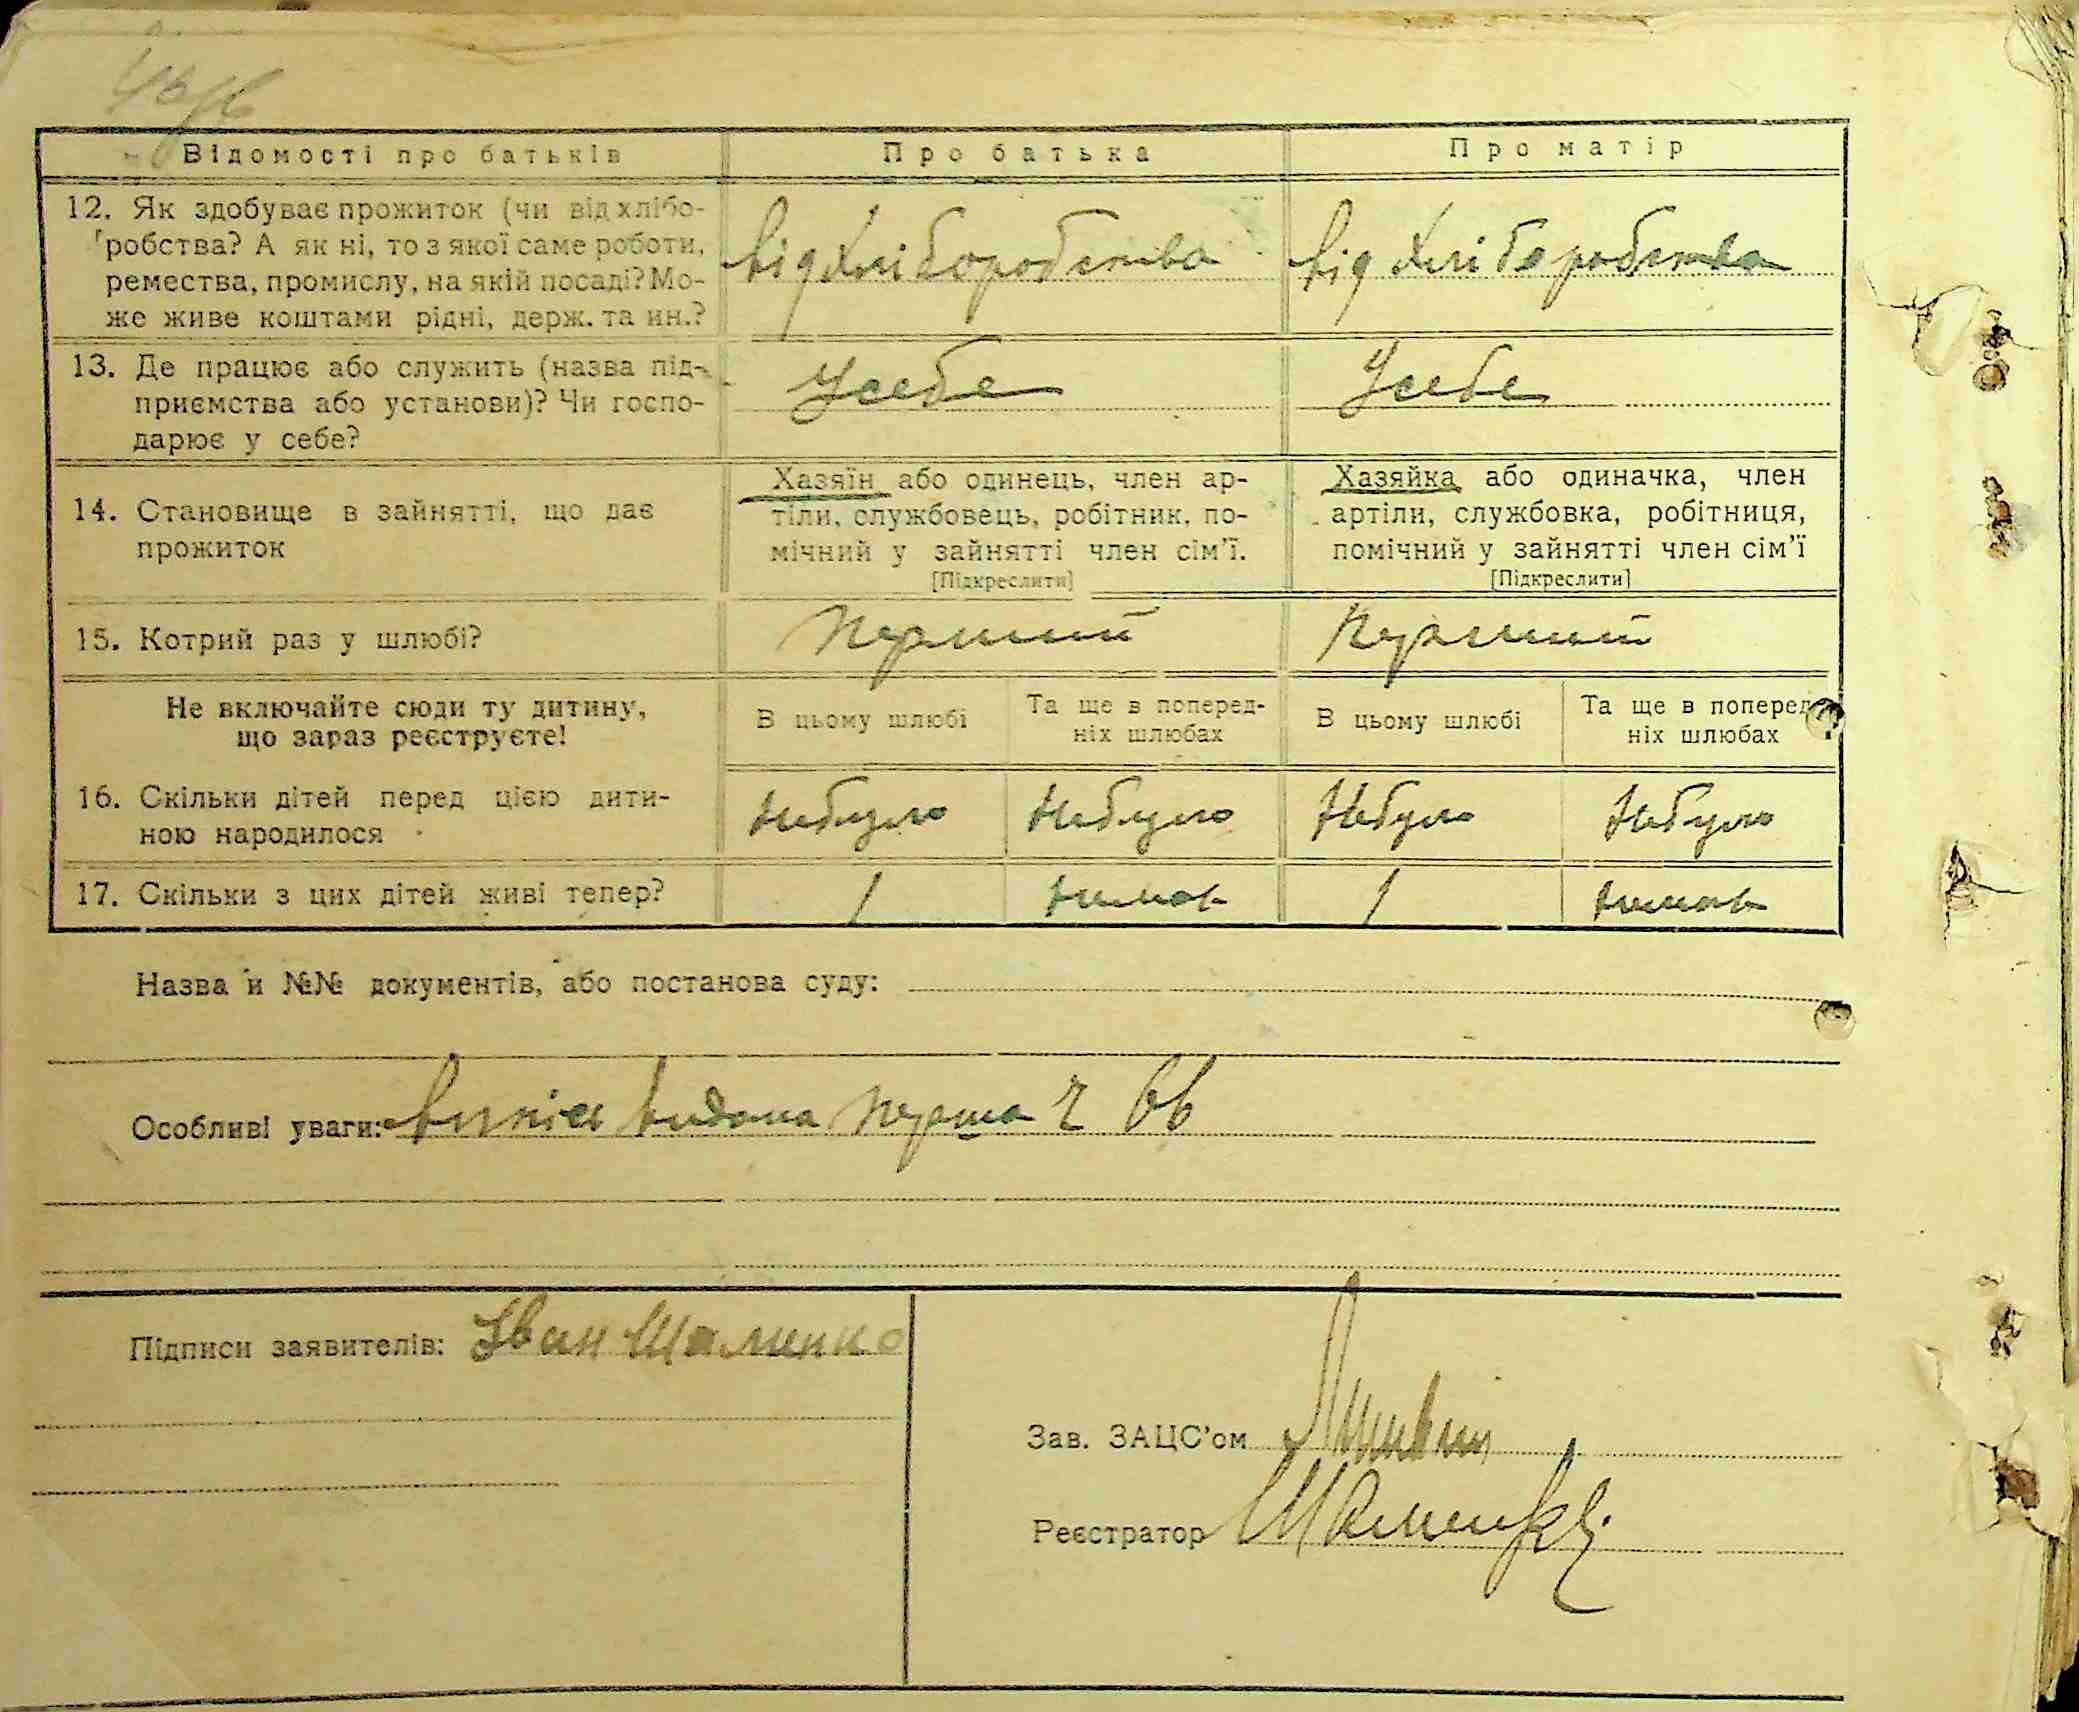 Відомості про батьків
Про батька
Про матір
12. Як здобуває прожиток (чи від хлібо-
робства? А як ні, то з якої саме роботи,
ремества, промислу, на якій посаді? Мо-
же живе коштами рідні, держ. та ин.?
від хліборобства
від хліборобства
13. Де працює або служить (назва під-
приємства або установи)? Чи госпо-
дарює у себе?
Усебе
Усебе
14. Становище в зайнятті, що дає
прожиток
Хазяїн або одинець, член ар-
тіли, службовець, робітник, по-
мічний у зайнятті член сім'ї.
[Підкреслити]
Хазяйка або одиначка, член
артіли, службовка, робітниця,
помічний у зайнятті член сім'ї
[Підкреслити]
15. Котрий раз у шлюбі?
Перший
Перший
Не включайте сюди ту дитину,
що зараз реєструєте!
В цьому шлюбі
Та ще в поперед-
ніх шлюбах
В цьому шлюбі
Та ще в поперед-
ніх шлюбах
16. Скільки дітей перед цією дити-
ною народилося
Небуло
Небуло
Небуло
Небуло
17. Скільки з цих дітей живі тепер?
1
1
Назва и №№ документів, або постанова суду:
Особливі уваги: видана перша
Підписи заявителів: Іван
Зав. ЗАЦС'ом
Реєстратор